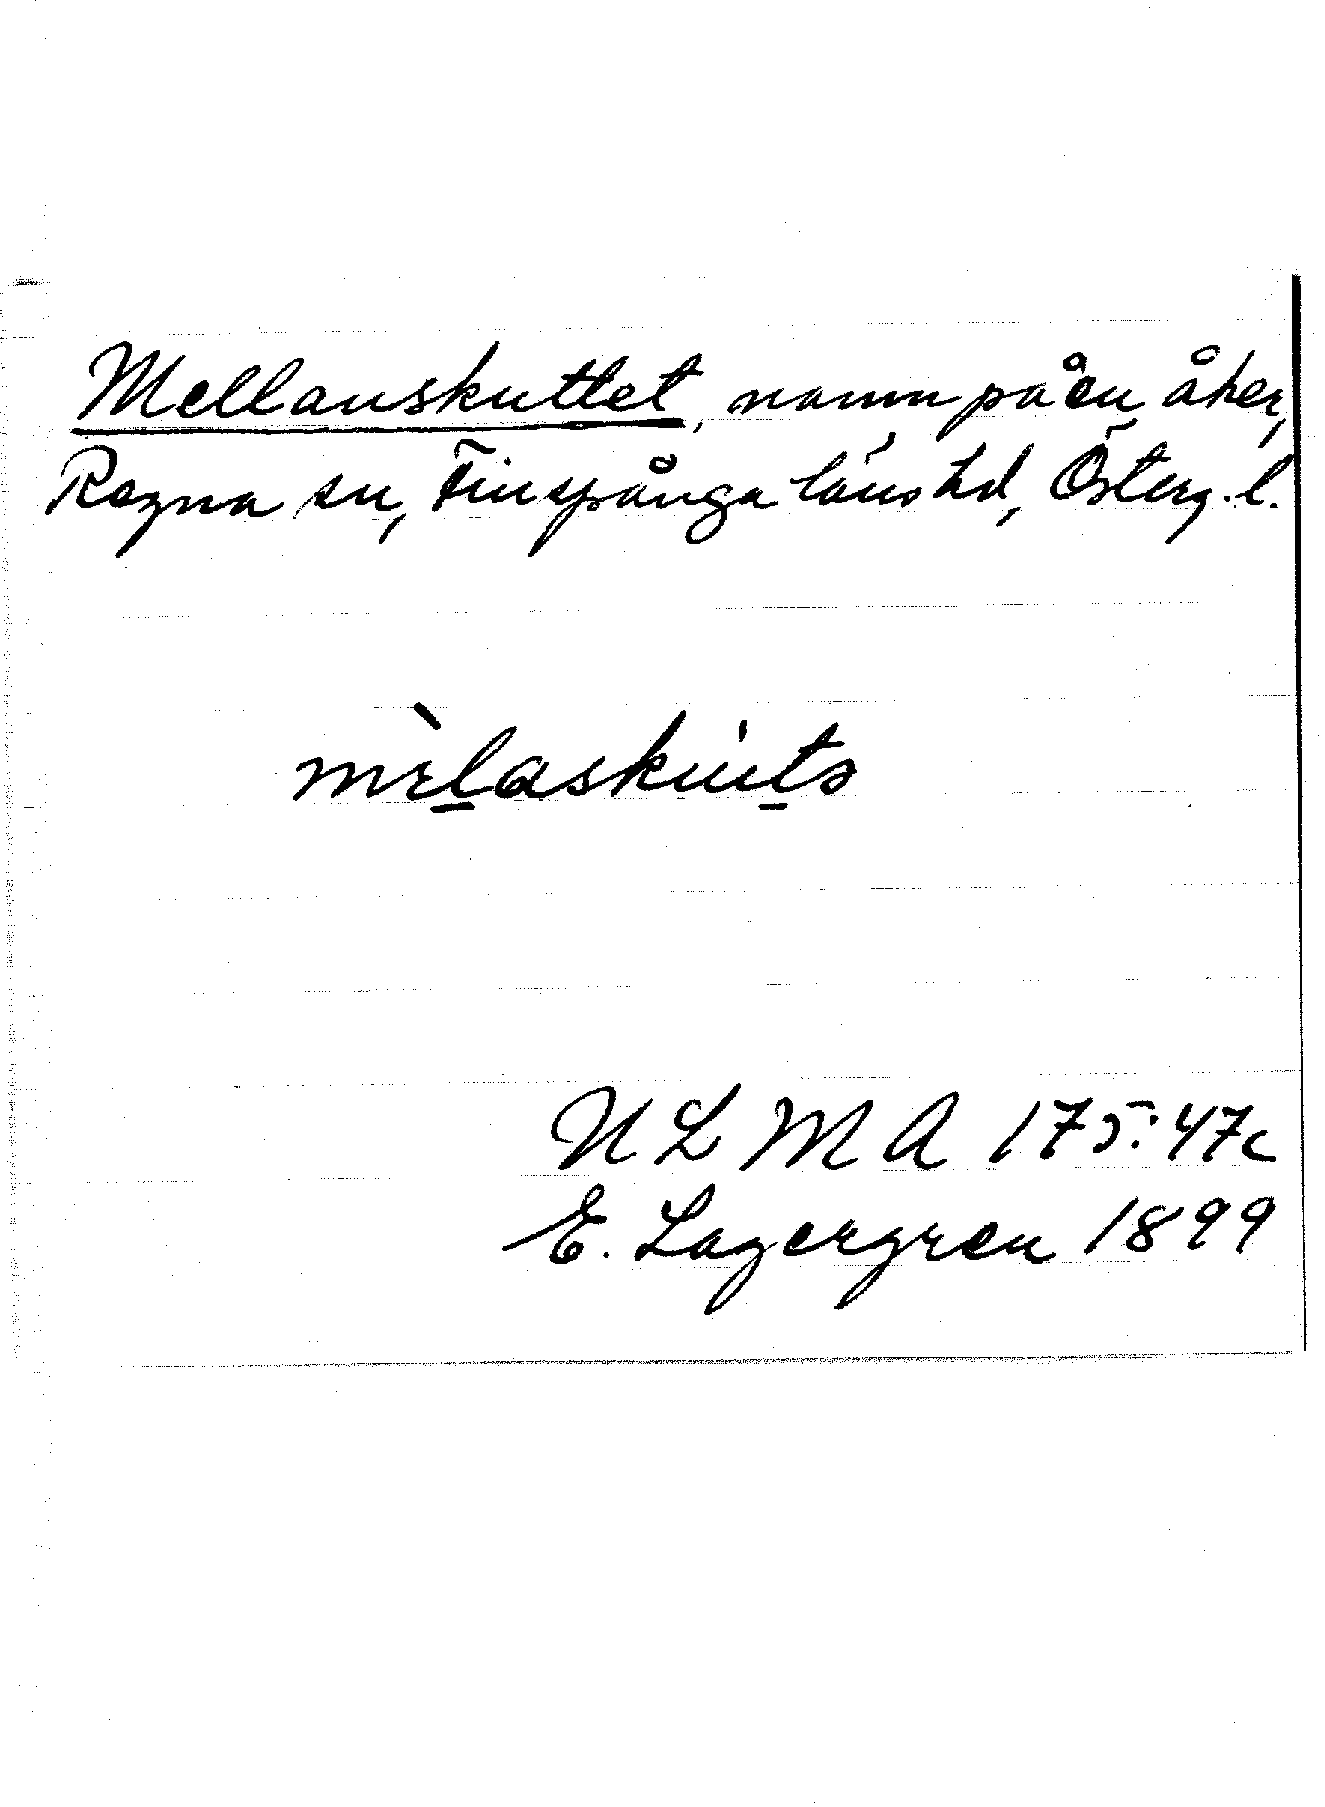 Mellanskuttet, namn på en åker,
Regna sn, Finspånga läns hd, Österg. l.
mὲlaskútə
ULMA 175:47c
E. Lagergren 1899